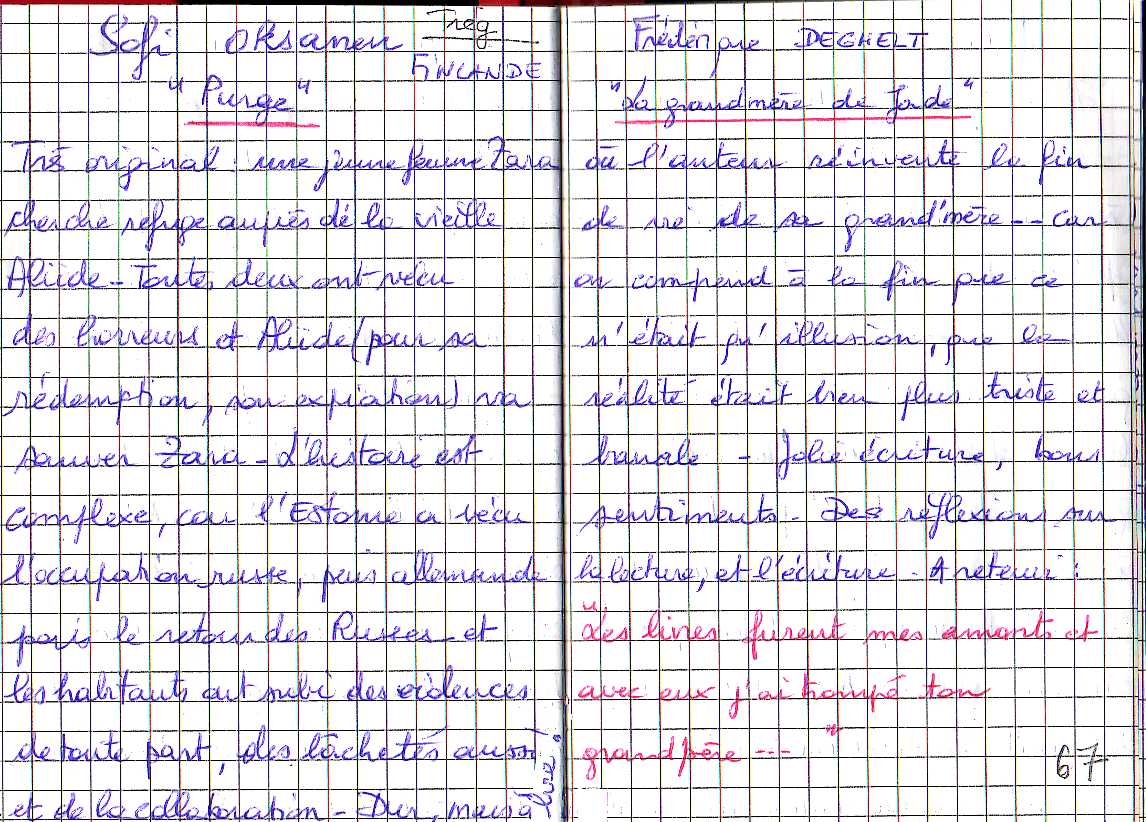 Sofi Oksanen
FINLANDE
"Purge"
Très original : une jeune femme Zara
cherche refuge auprès de la vieille
Aliide - Toutes deux ont vécu
des horreurs et Aliide (pour sa
rédemption, son expiation) va
sauver Zara - L'histoire est
complexe, car l'Estonie a vécu
l'occupation russe, puis allemande
puis le retour des Russes et
les habitants ont subi des violences
de toute part, des lâchetés aussi
et de la collaboration - Dur, mais à
lire !
Frédérique DEGHELT
"La grand mère de Jade"
où l'auteur réinvente la fin
de vie de sa grand'mère -- car
on comprend à la fin que ce
n'était qu'illusion, que la
réalité était bien plus triste et
banale - Jolie écriture, bons
sentiments - Des réflexions sur
la lecture, et l'écriture - A retenir :
"Les livres furent mes amants et
avec eux j'ai trompé ton
grand père --- "
67